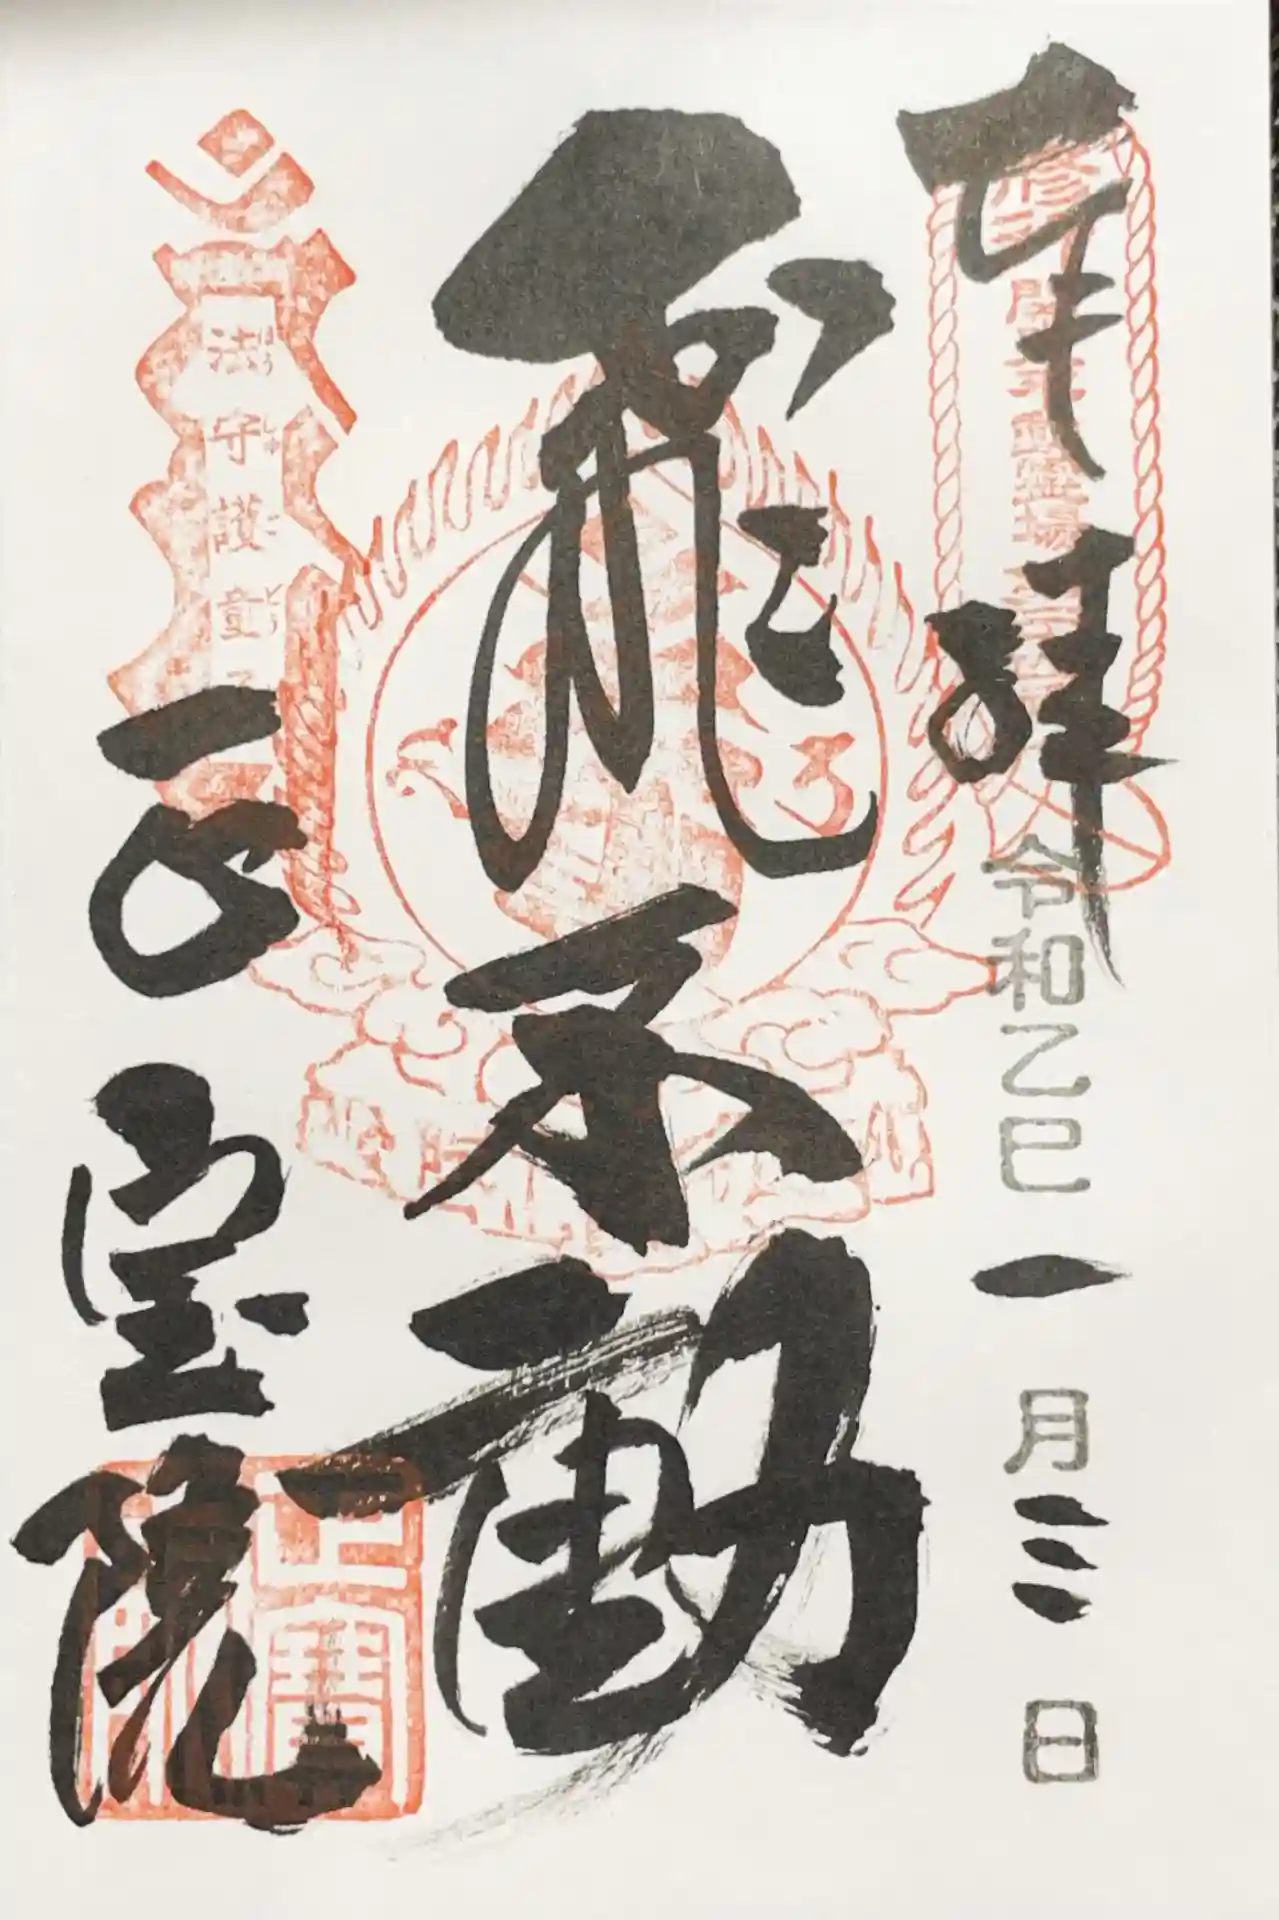 奉拝
令和乙巳一月三日
飛不動
正宝院
法守護童子
正寶院